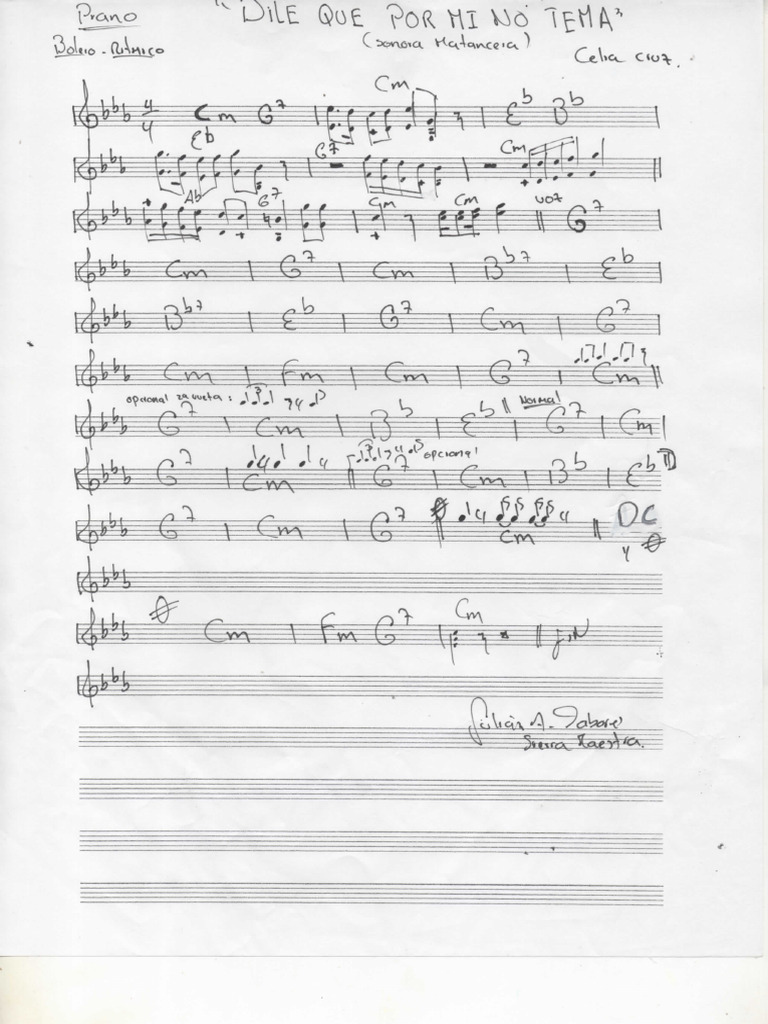 Piano
"DILE QUE POR MI NO TEMA"
Bolero-Ritmico
(Sonora Matancera)
Celia Cruz.
4/4 Cm G7 | Cm | Eb Bb
Eb G7 Cm
Ab G7 Cm Cm voz G7
Cm | G7 | Cm | Bb7 | Eb
Bb7 | Eb | G7 | Cm | G7
Cm | Fm | Cm | G7 | Cm
opcional 2a vuelta:
G7 | Cm | Bb | Eb || Normal G7 | Cm
opcional
G7 | Cm || G7 | Cm | Bb | Eb
G7 | Cm | G7 || Cm || DC
y
Cm | Fm G7 | Cm || FiN
Julián A.
Sierra Maestra.